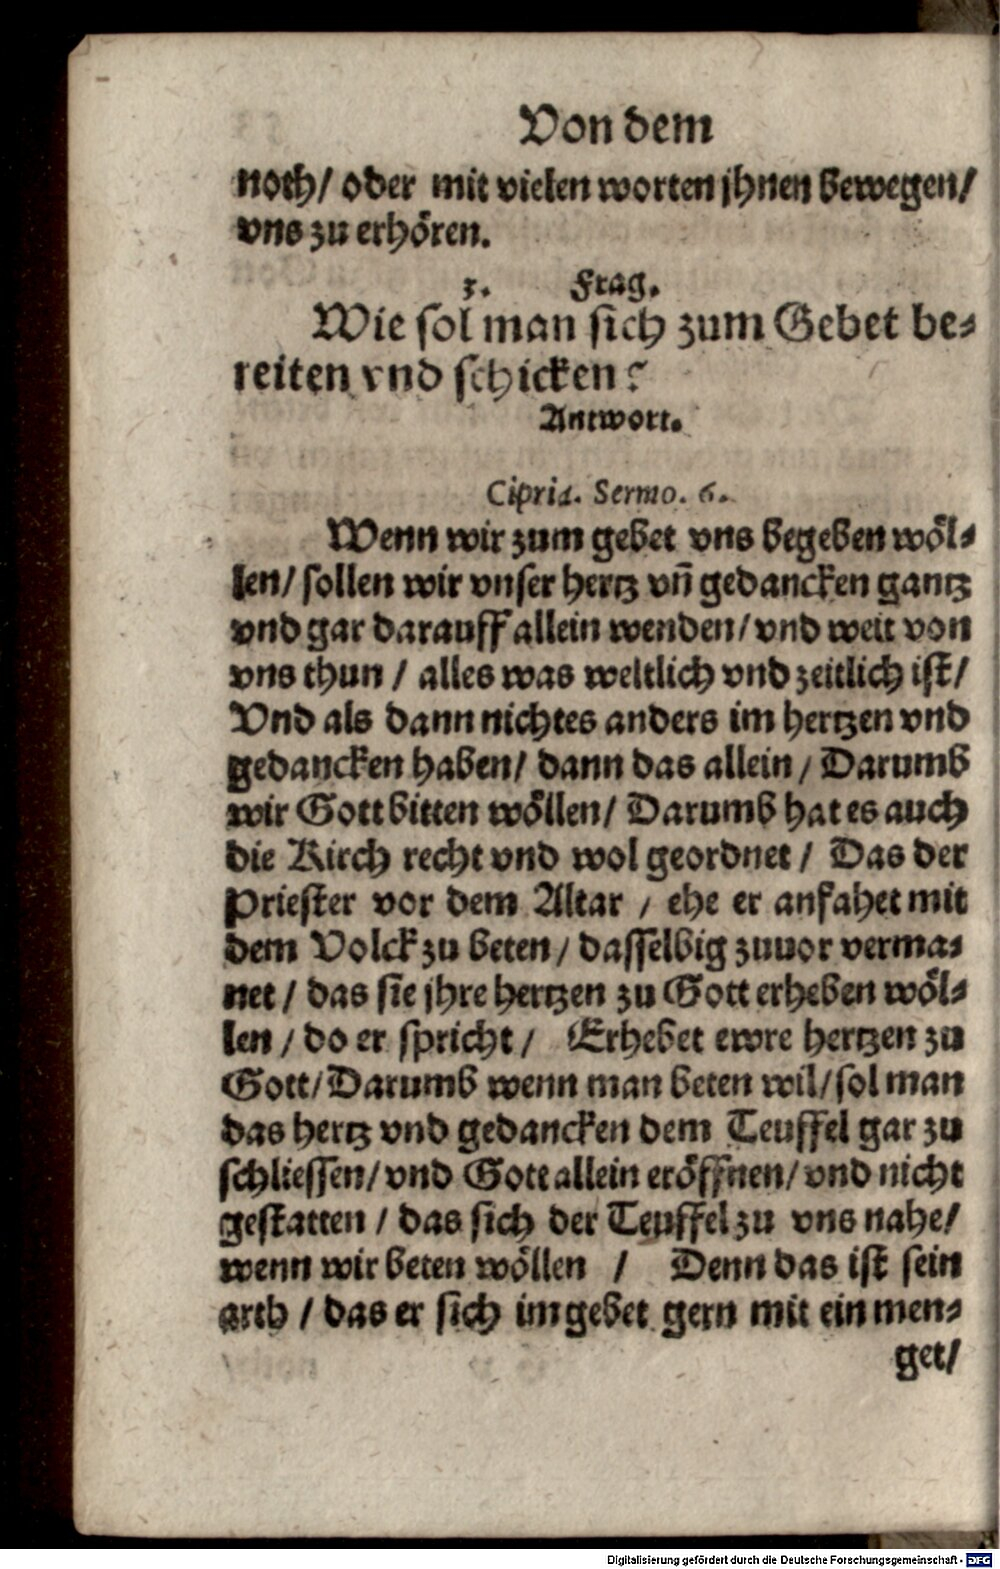 Von dem
noth/ oder mit vielen worten jhnen bewegen/
vns zu erhören.
x. Frag.
Wie sol man sich zum Gebet be⸗
reiten vnd schicken?
Antwort.
Cipria. Sermo. 6.
Wenn wir zum gebet vns begeben wöl⸗
len/ sollen wir vnser hertz vñ gedancken gantz
vnd gar darauff allein wenden/ vnd weit von
vns thun / alles was weltlich vnd zeitlich ist/
Vnd als dann nichtes anders im hertzen vnd
gedancken haben/ dann das allein / Darumb
wir Gott bitten wöllen/ Darumb hat es auch
die Kirch recht vnd wol geordnet / Das der
Priester vor dem Altar / ehe er anfahet mit
dem Volck zu beten / dasselbig zuuor verma⸗
net / das sie jhre hertzen zu Gott erheben wöl⸗
len / do er spricht / Erhebet ewre hertzen zu
Gott/ Darumb wenn man beten wil/ sol man
das hertz vnd gedancken dem Teuffel gar zu
schliessen/ vnd Gott allein eröffnen/ vnd nicht
gestatten / das sich der Teuffel zu vns nahe/
wenn wir beten wöllen / Denn das ist sein
arth / das er sich im gebet gern mit ein men⸗
get/
Digitalisierung gefördert durch die Deutsche Forschungsgemeinschaft - DFG